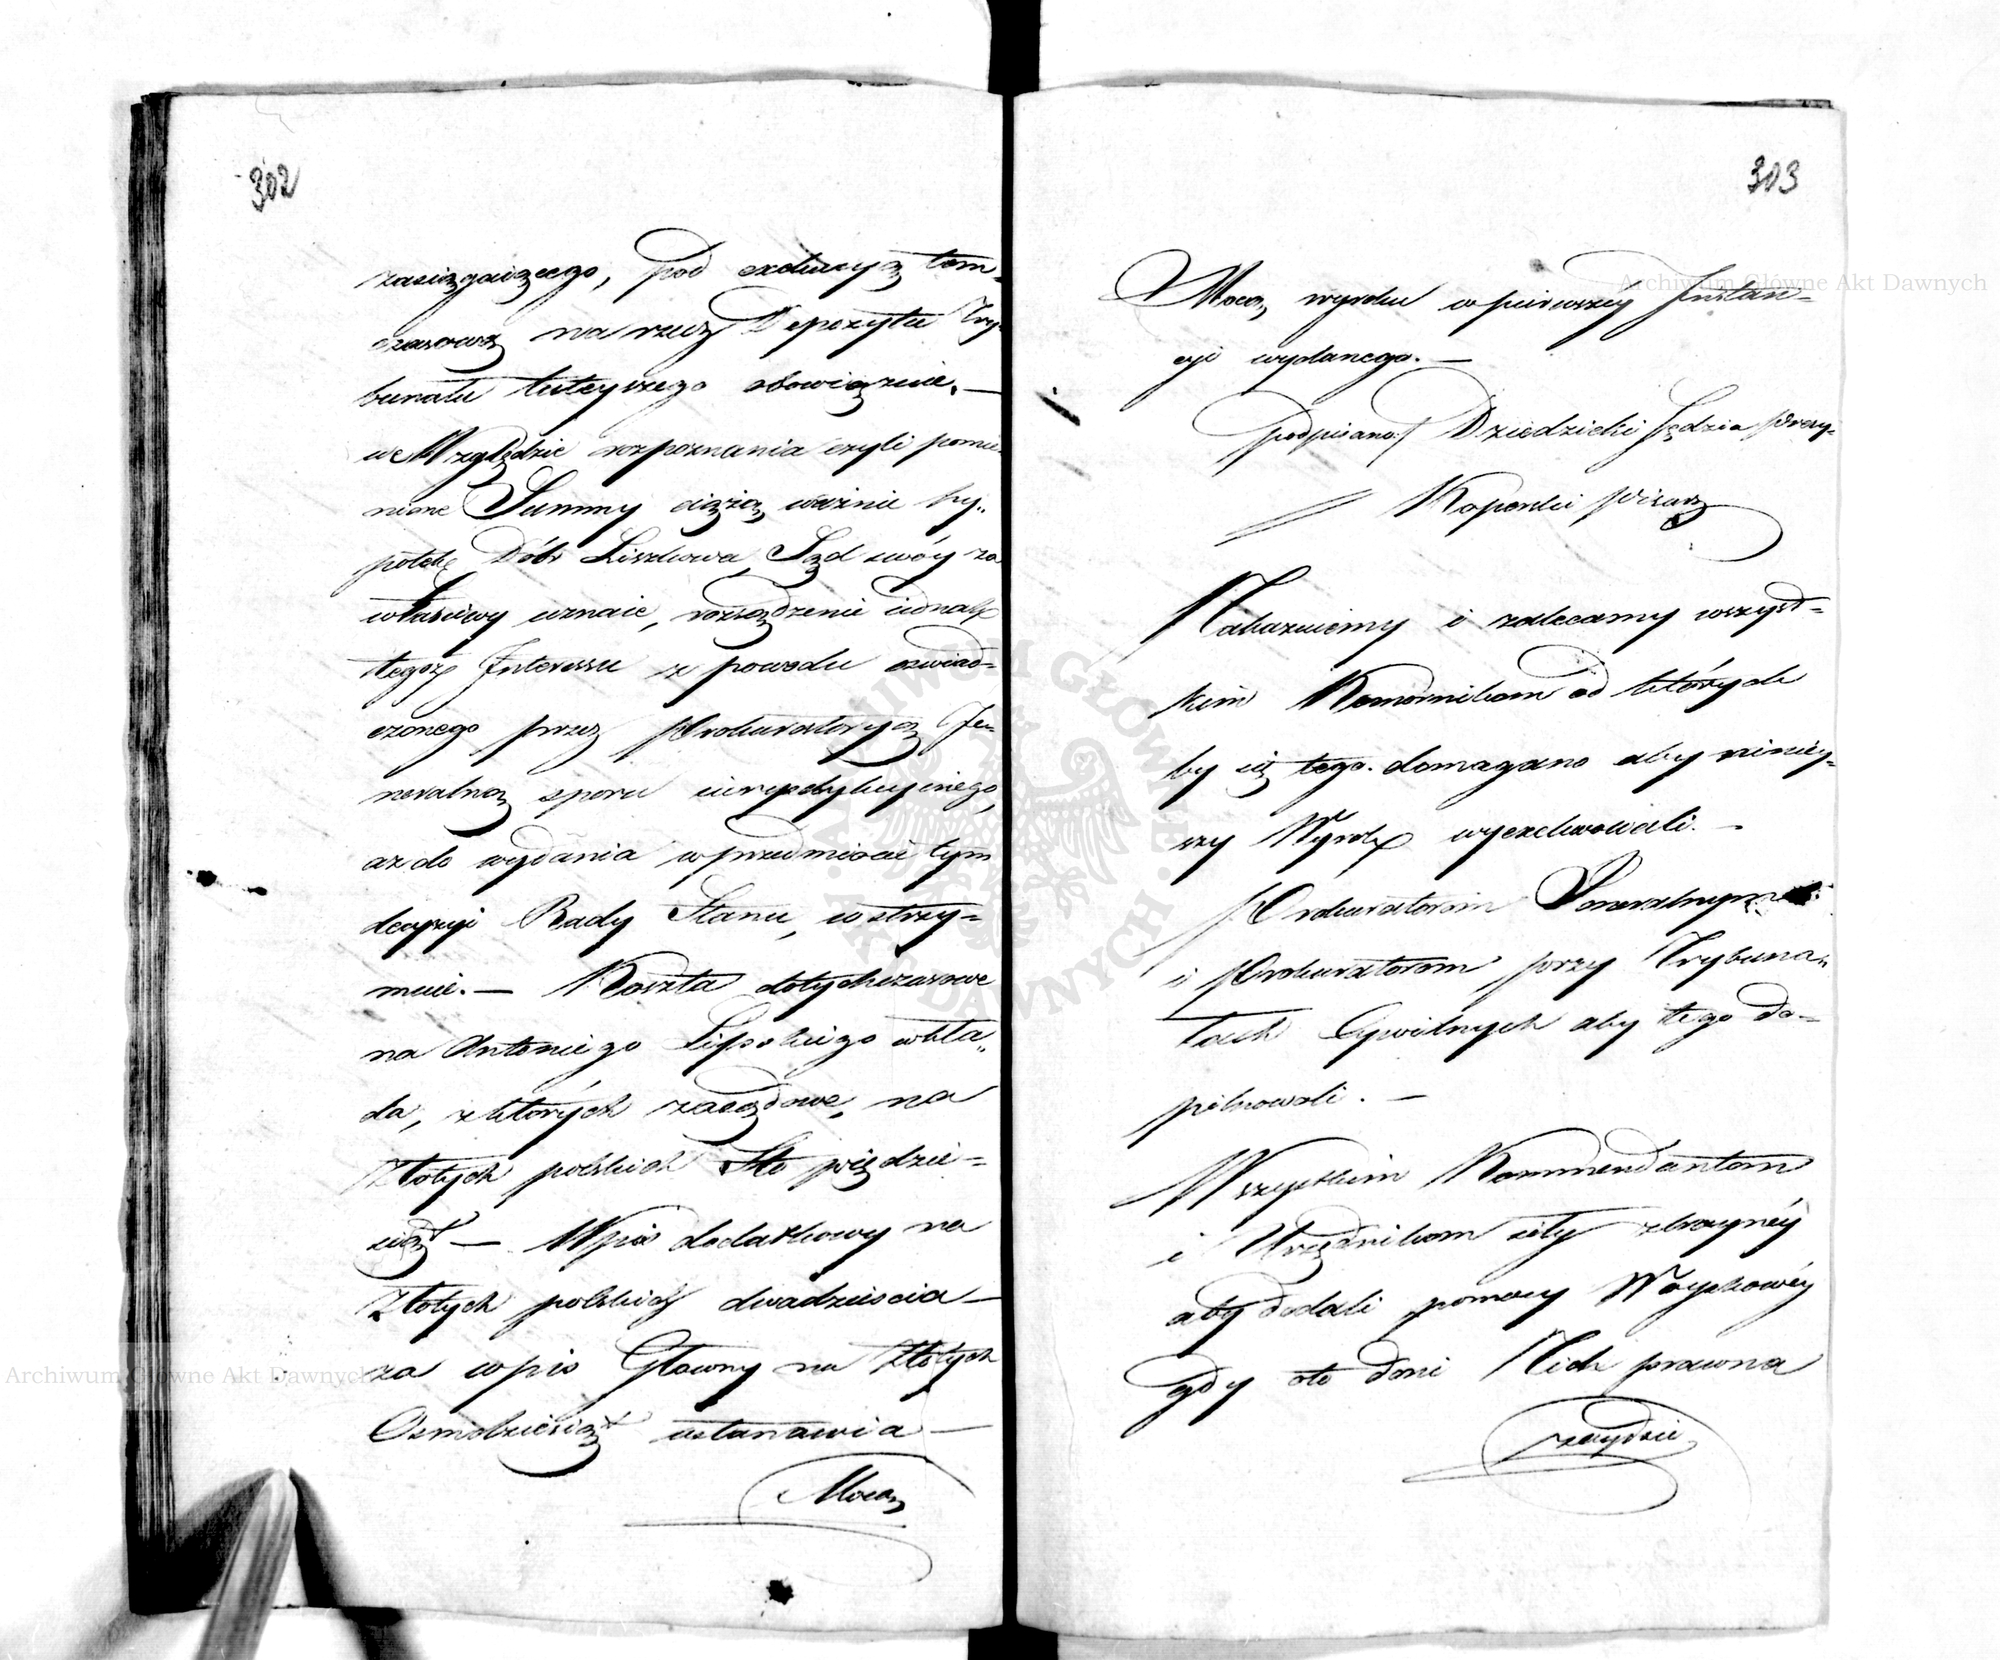 302
zasięgaiącego, pod exekucyą tem-
czasową na rzecz Depozytu Try-
bunału tuteyszego obowiązuie. —
we Względzie rozpoznania czyli pomie-
nione Summy ciążą ważnie hy-
potekę Dóbr Liszkowa, Sąd swóy za
właściwy uznaie, rozsądzenie iednak
tegoż Interessu z powodu oświad-
czonego przez Prokuratoryą Je-
neralną sporu iurysdykcyinego,
az do wydania w przedmiocie tym
decyzyi Rady Stanu, wstrzy-
muie. — Koszta dotychczasowe
na Antoniego Lipskiego wkła-
da, z których zasądowe, na
Złotych polskich Sto piędzie-
siąt — Wpis dodatkowy na
Złotych polskich dwadzieścia —
za wpis Główny na Złotych
Osmdziesiąt ustanawia —
Mocą
303
Mocą wyroku w pierwszey Instan-
cyi wydanego. —
podpisano/ Dziedzicki Sędzia Prezy-
Koperski Pisarz
Nakazuiemy i zalecamy wszyst-
kim Komornikom od których
by się tego domagano aby niniey-
szy Wyrok wyexekwowali. —
Prokuratorom Jeneralnym
i Prokuratorom przy Trybuna-
łach Cywilnych aby tego do-
pilnowali. —
Wszystkim Kommendantom
i Urzędnikom siły zbroynéy
aby dodali pomocy Woyskowéy
gdy oto oni Nich prawna
zaydzie
Archiwum Główne Akt Dawnych
Archiwum Główne Akt Dawnych
ARCHIWUM GŁÓWNE AKT DAWNYCH